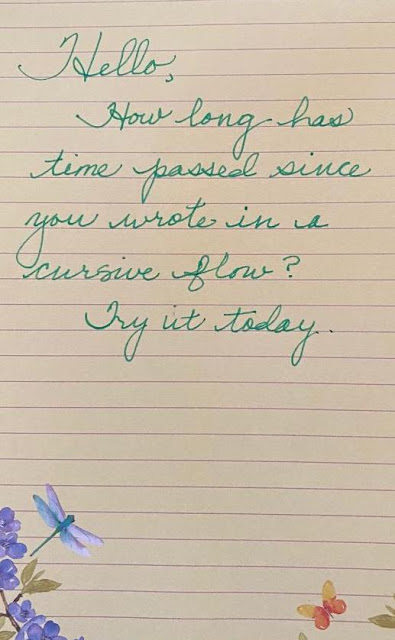 Hello,
How long has
time passed since
you wrote in a
cursive flow?
Try it today.